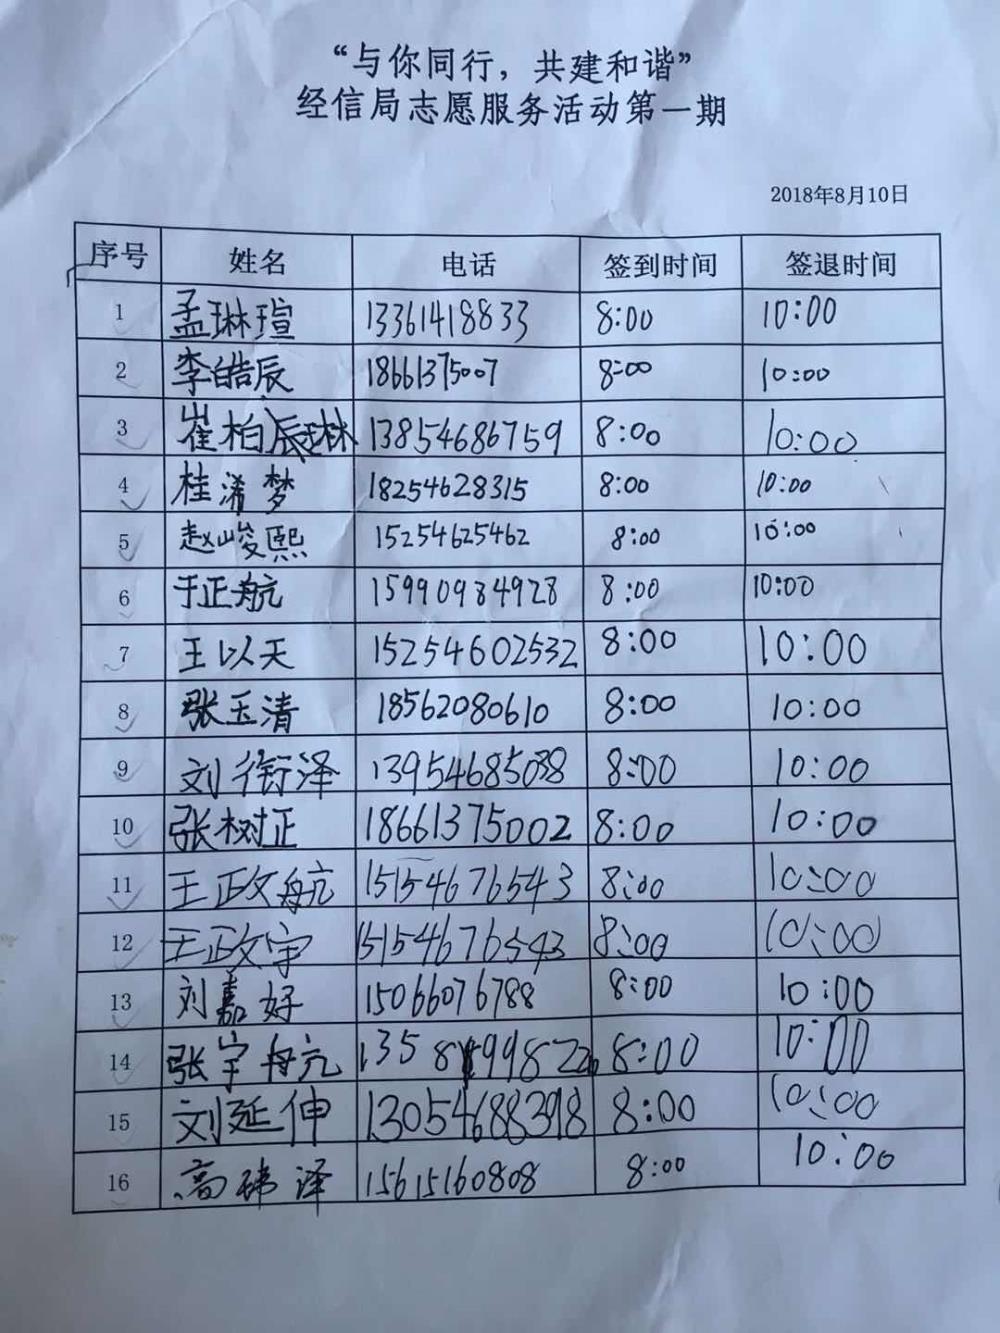 “与你同行，共建和谐”
经信局志愿服务活动第一期
2018年8月10日
序号 姓名 电话 签到时间 签退时间
1 孟琳瑄 13361418833 8:00 10:00
2 李皓辰 18661375007 8:00 10:00
3 崔柏辰琳 13854686759 8:00 10:00
4 桂浠梦 18254628315 8:00 10:00
5 赵峻熙 15254625462 8:00 10:00
6 于正航 15990984928 8:00 10:00
7 王以天 15254602532 8:00 10:00
8 张玉清 18562080610 8:00 10:00
9 刘衔泽 13954685038 8:00 10:00
10 张树正 18661375002 8:00 10:00
11 王政航 15154676543 8:00 10:00
12 王政宇 15154676543 8:00 10:00
13 刘嘉好 15066076788 8:00 10:00
14 张宇航 8:00 10:00
15 刘延伸 13054688398 8:00 10:00
16 高祎泽 15615160808 8:00 10:00